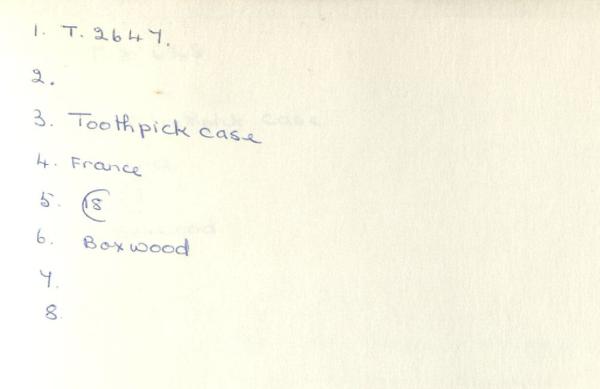 1. T. 2647.
2.
3. Toothpick case
4. France
5. C18
6. Boxwood
7.
8.